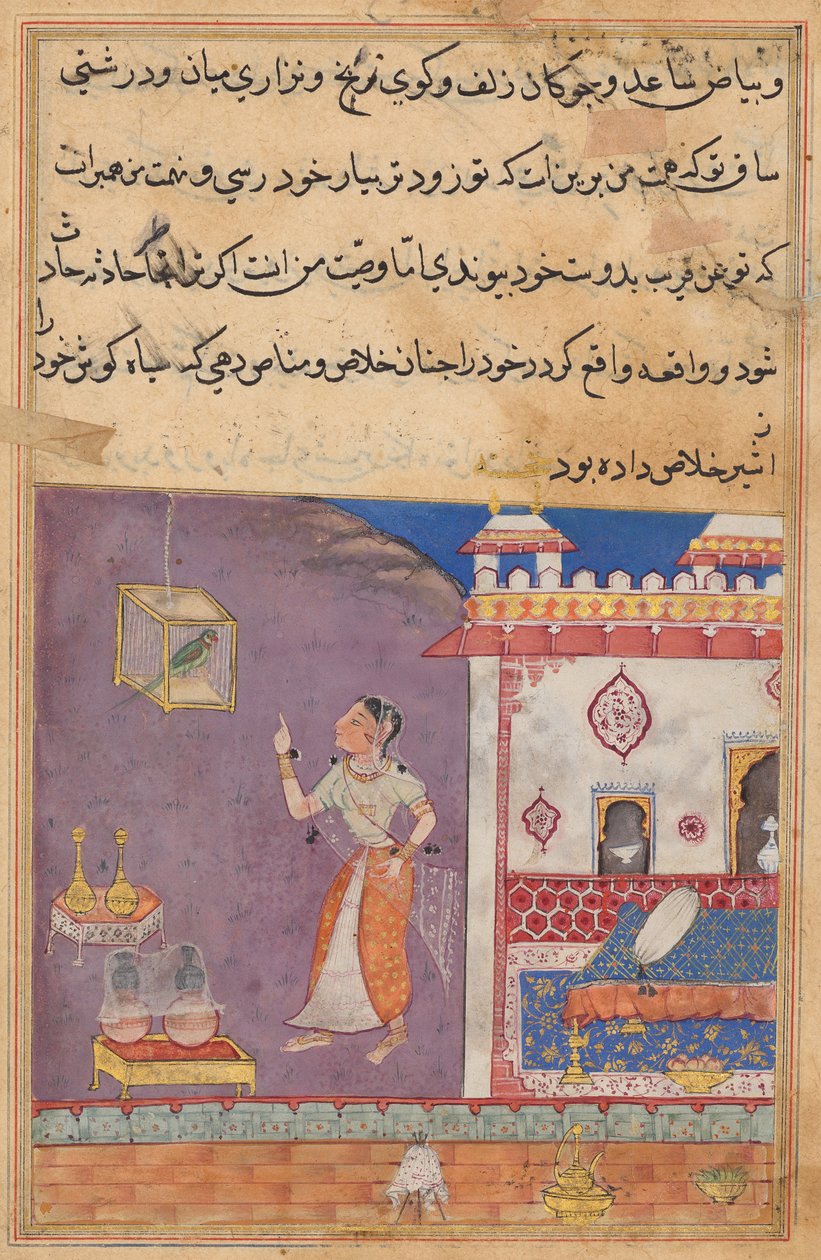 و بیاض ساعد و جوکان زلف و کوی زنخ و نزاری میان و درشتی
ساق تو که همت من برین است که تو زود تر بیار خود رسی و نهمت من همبر انست
که تو عن قریب بدوست خود پیوندی امّا وصیّت من انست اکر ترا انجا حادثه حادث
شود و واقعه واقع کردد خود را جنان خلاص و مناص دهی که سیاه کوش خود را
از شیر خلاص داده بود